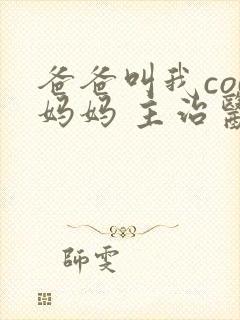 爸爸叫我co
妈妈 主治
師雯